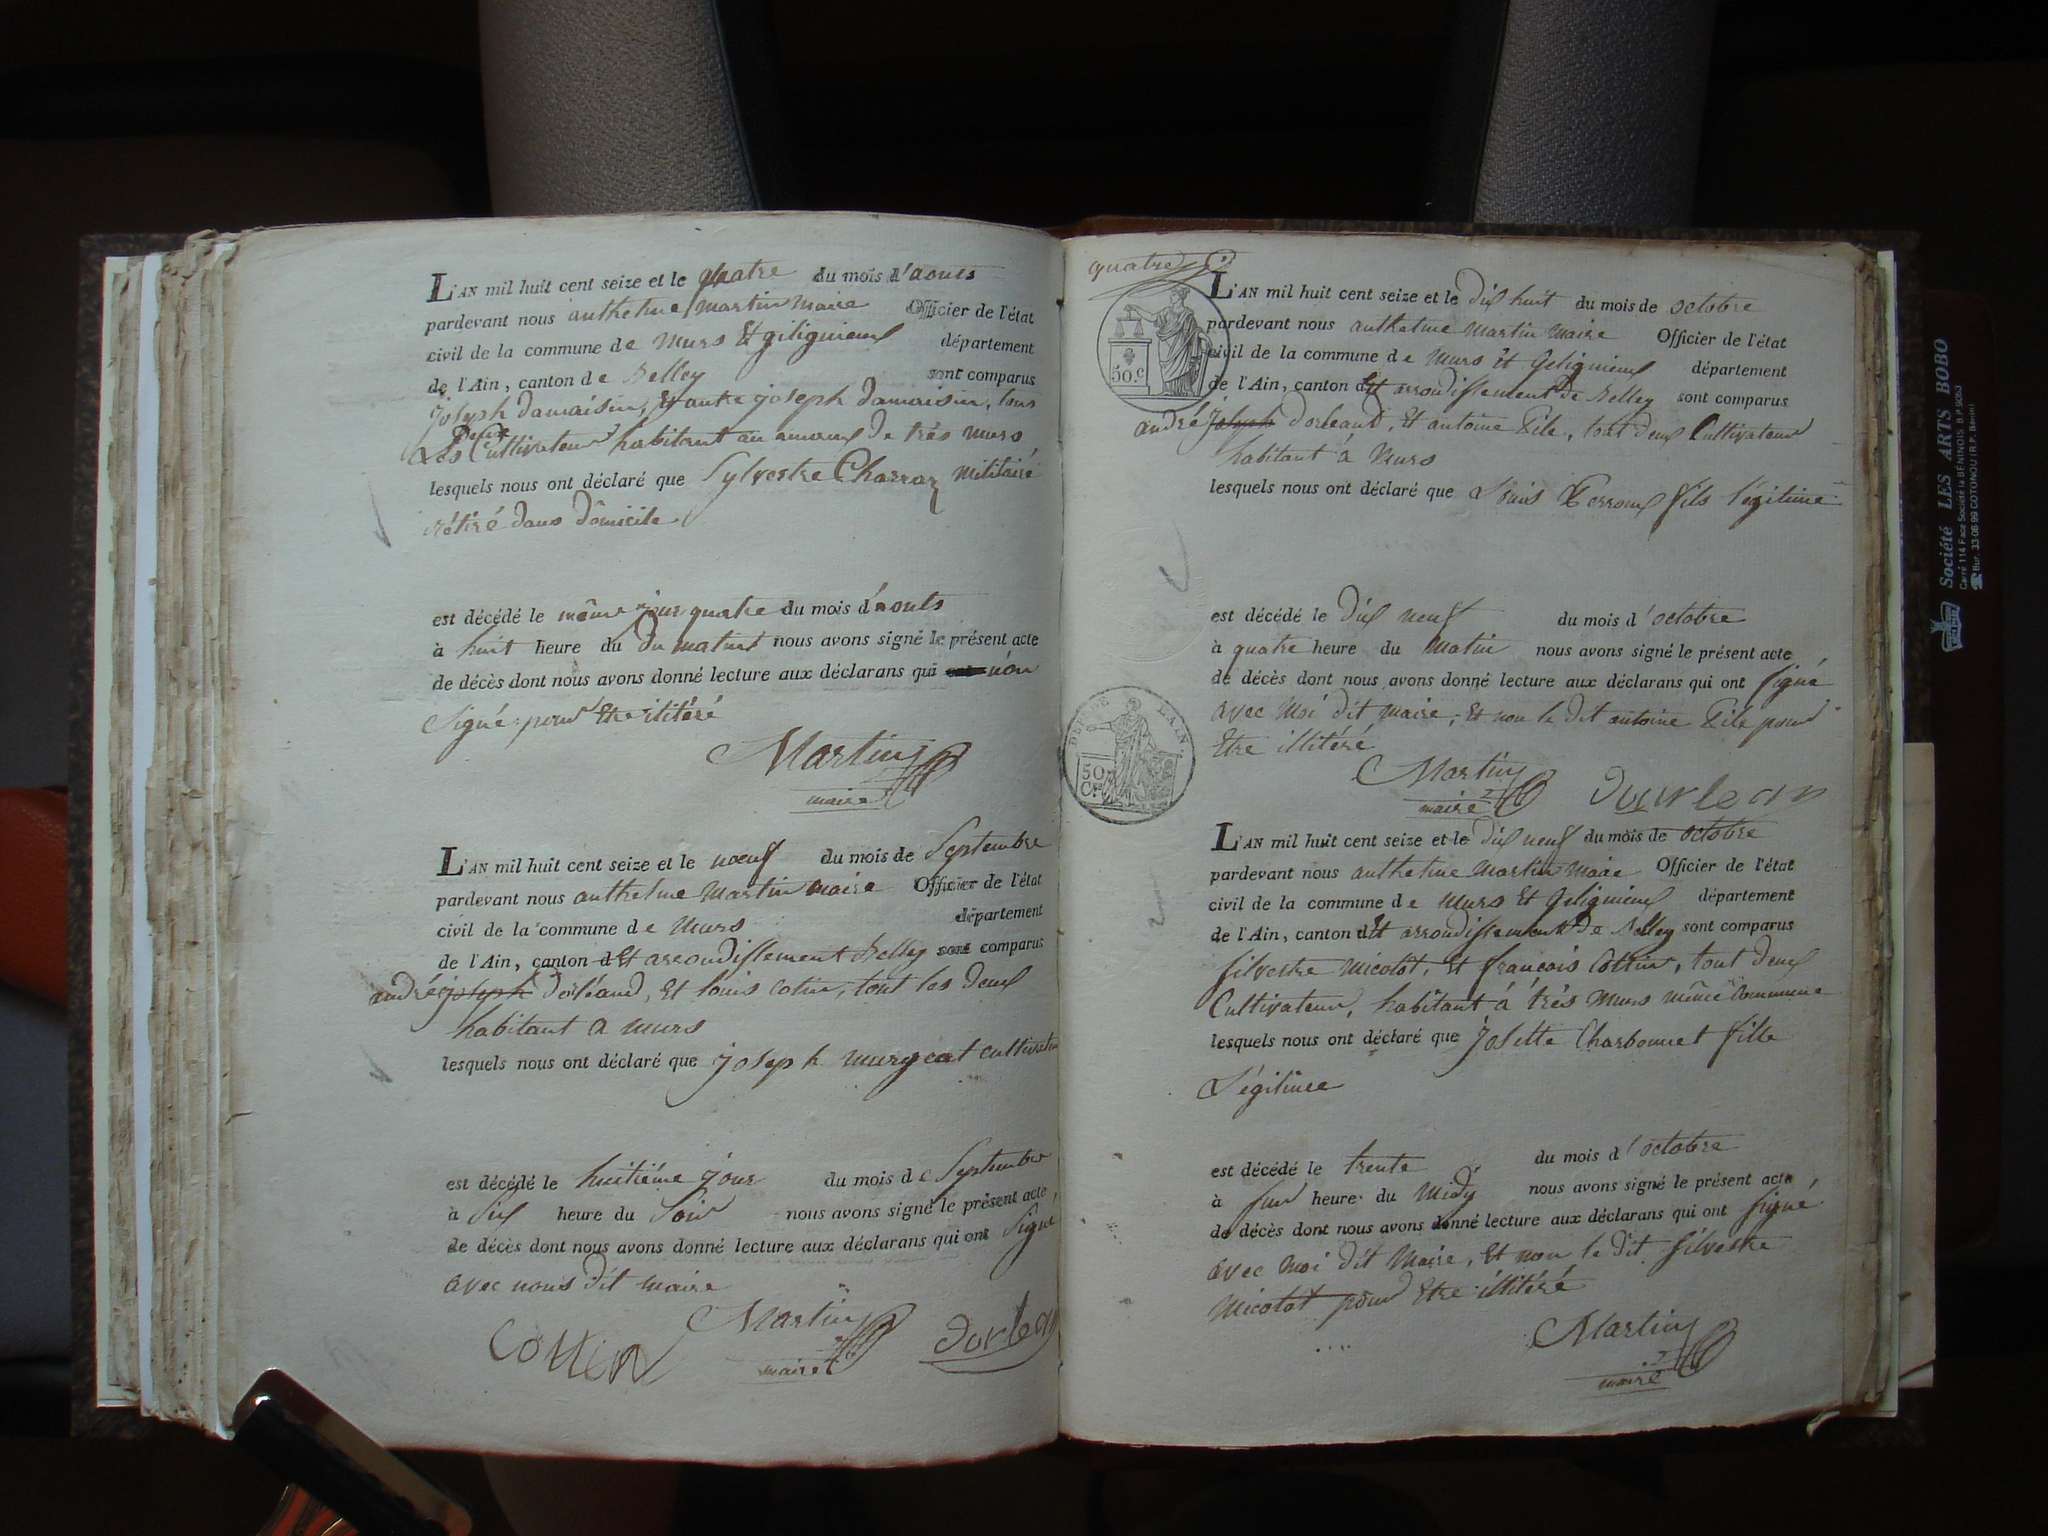 L'AN mil huit cent seize et le quatre du mois d'aouts
pardevant nous anthelme martin maire Officier de l'état
civil de la commune de Murs Et gelignieux département
de l'Ain, canton de Belley sont comparus
joseph damaisin, Et autre joseph damaisin, tous
Les Deux Cultivateur habitant au amaux de très murs
lesquels nous ont déclaré que Sylvestre Charraz militaire
rétiré dans Domicile
est décédé le même jour quatre du mois d'aouts
à huit heure du Du matins nous avons signé le présent acte
de décès dont nous avons donné lecture aux déclarans qui non
Signé pour Etre illitéré
Martin
maire
L'AN mil huit cent seize et le noeuf du mois de Septembre
pardevant nous anthelme Martin maire Officier de l'état
civil de la commune de Murs département
de l'Ain, canton d Et arrondissement Belley sont comparus
andré joseph dorléand, Et louis cotin, tout les deux
habitant a murs
lesquels nous ont déclaré que joseph murgeat cultivateur
est décédé le huitiéme jour du mois de Septembre
à Six heure du Soir nous avons signé le présent acte
de décès dont nous avons donné lecture aux déclarans qui ont Signé
avec nous dit maire
Cottin Martin dorlean
maire
quatre
50.c
L'AN mil huit cent seize et le Dix huit du mois de octobre
pardevant nous anthelme martin maire Officier de l'état
civil de la commune de Murs Et Gelignieux département
de l'Ain, canton d Et arrondissement De Belley sont comparus
andré joseph dorleand, Et antoine Pile, tout deux Cultivateur
habitant à Murs
lesquels nous ont déclaré que Louis Perroux fils légitime
est décédé le Dix neuf du mois d'octobre
à quatre heure du Matin nous avons signé le présent acte
de décès dont nous avons donné lecture aux déclarans qui ont signé
avec Moi dit maire, Et non le dit antoine Pile pour
Etre illitéré
DEP. DE L'AIN.
50 Cs.
Martin dourlean
maire
L'AN mil huit cent seize et le Dix neuf du mois de octobre
pardevant nous anthelme martin maire Officier de l'état
civil de la commune de murs Et Gelignieux département
de l'Ain, canton d Et arrondissement De Belley sont comparus
silvestre micolot, Et francois Cottin, tout deux
Cultivateur, habitant à très Murs même Commune
lesquels nous ont déclaré que Josette Charbonnet fille
Légitime
est décédé le trente du mois d'octobre
à sur heure du Midy nous avons signé le présent acte
de décès dont nous avons donné lecture aux déclarans qui ont signé
avec moi dit Maire, Et non le dit silvestre
micolot pour Etre illitéré
Martin
maire
Société LES ARTS BOBO
Carré 114 Face Société la BÉNINOIS B.P.
Bur. 33-06-99 COTONOU (R.P. Bénin)